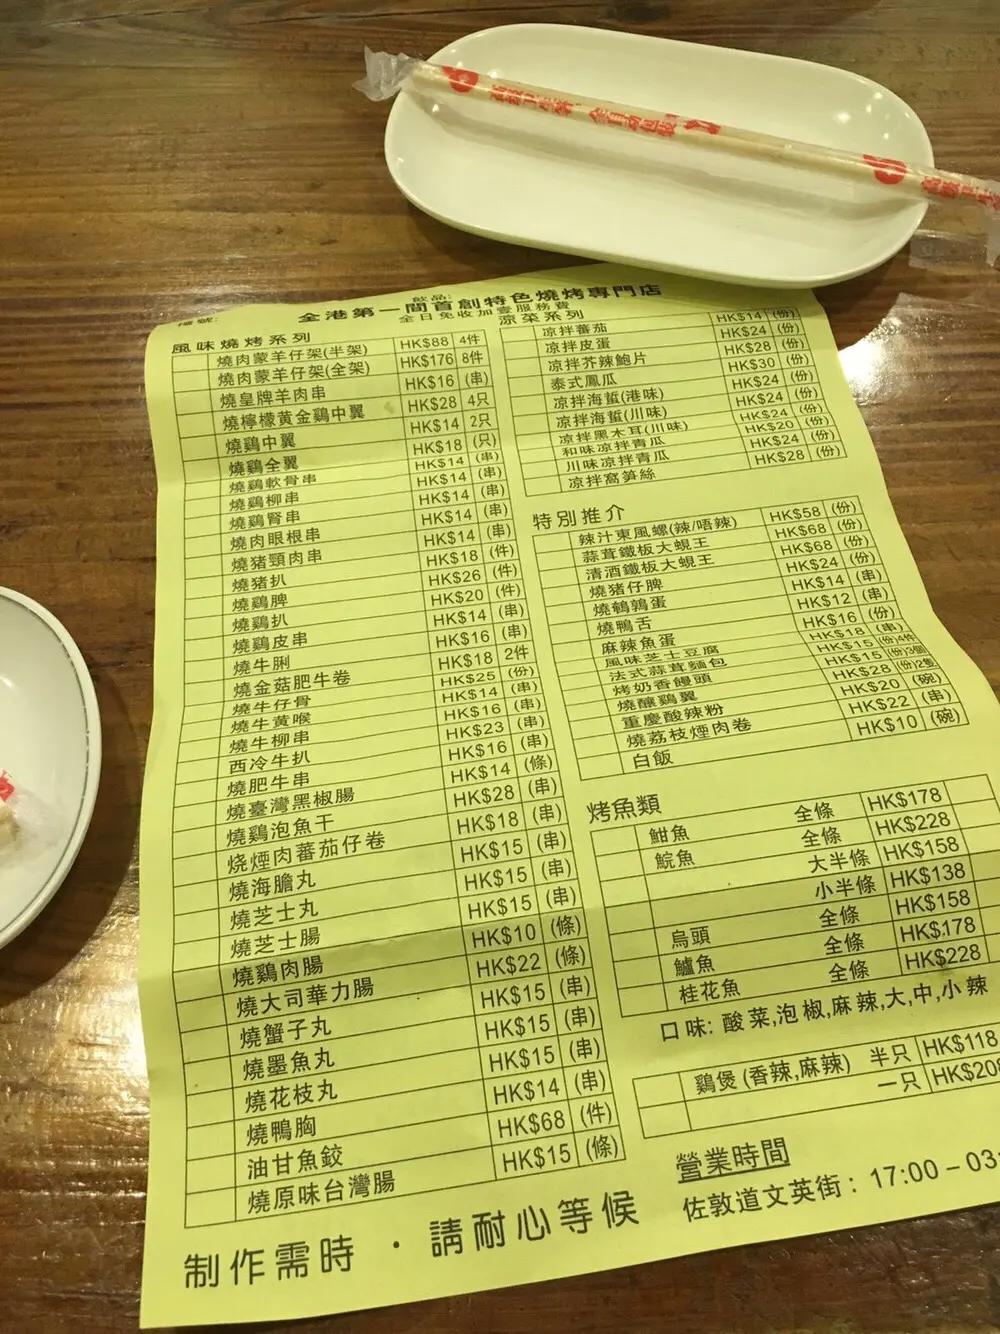 飲品:
檯號:
全港第一間首創特色燒烤專門店
全日免收加壹服務費
風味燒烤系列
燒肉蒙羊仔架(半架) HK$88 4件
燒肉蒙羊仔架(全架) HK$176 8件
燒皇牌羊肉串 HK$16 (串)
燒檸檬黄金鷄中翼 HK$28 4只
燒鷄中翼 HK$14 2只
燒鷄全翼 HK$18 (只)
燒鷄軟骨串 HK$14 (串)
燒鷄柳串 HK$14 (串)
燒鷄腎串 HK$14 (串)
燒肉眼根串 HK$14 (串)
燒猪頸肉串 HK$14 (串)
燒猪扒 HK$18 (件)
燒鷄脾 HK$26 (件)
燒鷄扒 HK$20 (件)
燒鷄皮串 HK$14 (串)
燒牛脷 HK$16 (串)
燒金菇肥牛卷 HK$18 2件
燒牛仔骨 HK$25 (份)
燒牛黄喉 HK$14 (串)
燒牛柳串 HK$16 (串)
西冷牛扒 HK$23 (串)
燒肥牛串 HK$16 (串)
燒臺灣黑椒腸 HK$14 (條)
燒鷄泡魚干 HK$28 (串)
烧煙肉蕃茄仔卷 HK$18 (串)
燒海膽丸 HK$15 (串)
燒芝士丸 HK$15 (串)
燒芝士腸 HK$15 (串)
燒鷄肉腸 HK$10 (條)
燒大司華力腸 HK$22 (條)
燒蟹子丸 HK$15 (串)
燒墨魚丸 HK$15 (串)
燒花枝丸 HK$15 (串)
燒鴨胸 HK$14 (串)
油甘魚鉸 HK$68 (件)
燒原味台灣腸 HK$15 (條)
凉菜系列
凉拌蕃茄 HK$14 (份)
凉拌皮蛋 HK$24 (份)
凉拌芥辣鮑片 HK$28 (份)
泰式鳳瓜 HK$30 (份)
凉拌海蜇(港味) HK$24 (份)
凉拌海蜇(川味) HK$24 (份)
凉拌黑木耳(川味) HK$24 (份)
和味凉拌青瓜 HK$20 (份)
川味凉拌青瓜 HK$24 (份)
凉拌窩笋絲 HK$28 (份)
特別推介
辣汁東風螺(辣/唔辣) HK$58 (份)
蒜茸鐵板大蜆王 HK$68 (份)
清酒鐵板大蜆王 HK$68 (份)
燒猪仔脾 HK$24 (份)
燒鵪鶉蛋 HK$14 (串)
燒鴨舌 HK$12 (串)
麻辣魚蛋 HK$16 (份)
風味芝士豆腐 HK$18 (串)
法式蒜茸麵包 HK$15 (份)4件
烤奶香饅頭 HK$15 (份)3個
燒釀鷄翼 HK$28 (份)2隻
重慶酸辣粉 HK$20 (碗)
燒荔枝煙肉卷 HK$22 (串)
白飯 HK$10 (碗)
烤魚類
鉗魚 全條 HK$178
鯇魚 全條 HK$228
大半條 HK$158
小半條 HK$138
烏頭 全條 HK$158
鱸魚 全條 HK$178
桂花魚 全條 HK$228
口味: 酸菜,泡椒,麻辣,大,中,小辣
鷄煲(香辣,麻辣) 半只 HK$118
一只 HK$208
營業時間
佐敦道文英街: 17:00 – 03
制作需時 · 請耐心等候